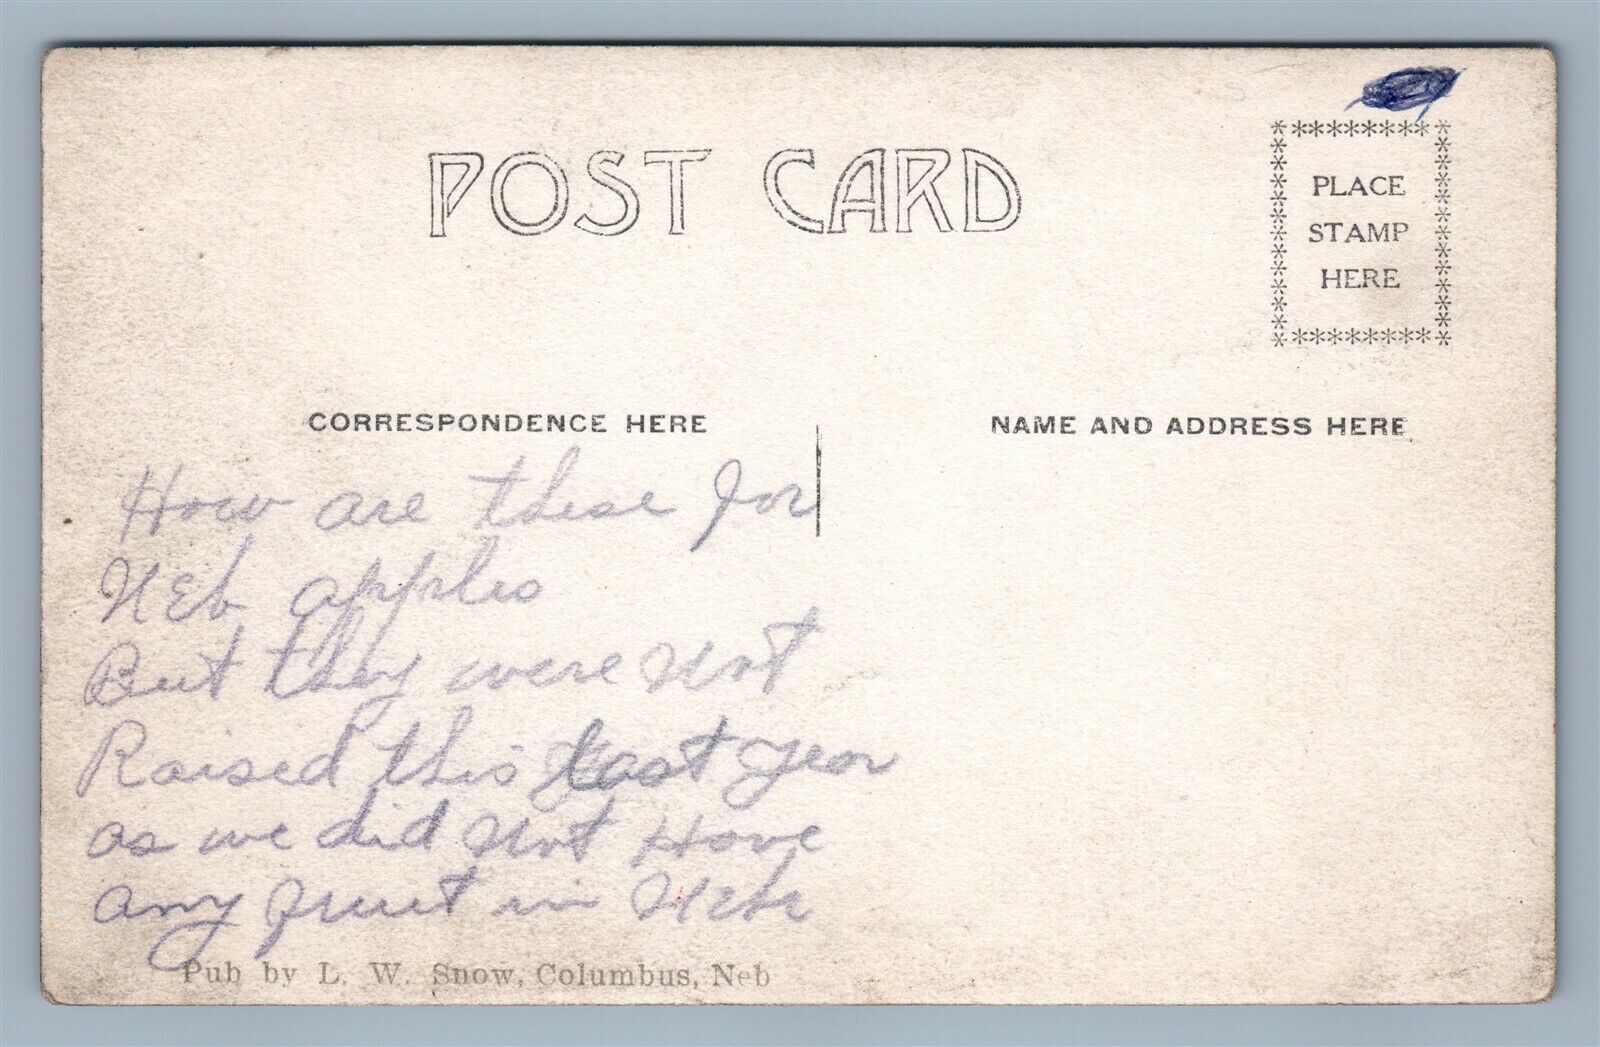 POST CARD
PLACE
STAMP
HERE
CORRESPONDENCE HERE
NAME AND ADDRESS HERE
How are these for
Neb apples
But they were not
Raised this last year
as we did not Have
any fruit in Nebr
Pub by L. W. Snow, Columbus, Neb